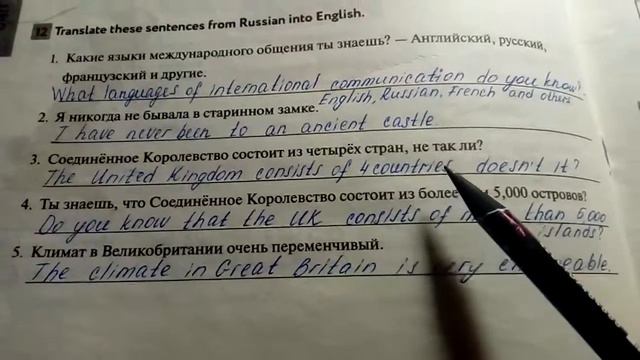 12 Translate these sentences from Russian into English.
1. Какие языки международного общения ты знаешь? — Английский, русский,
французский и другие.
What languages of international communication do you know?
English, Russian, French and others
2. Я никогда не бывала в старинном замке.
I have never been to an ancient castle.
3. Соединённое Королевство состоит из четырёх стран, не так ли?
The United Kingdom consists of 4 countries doesn't it?
4. Ты знаешь, что Соединённое Королевство состоит из более 5,000 островов?
Do you know that the UK consists of than 5,000
islands?
5. Климат в Великобритании очень переменчивый.
The climate in Great Britain is very